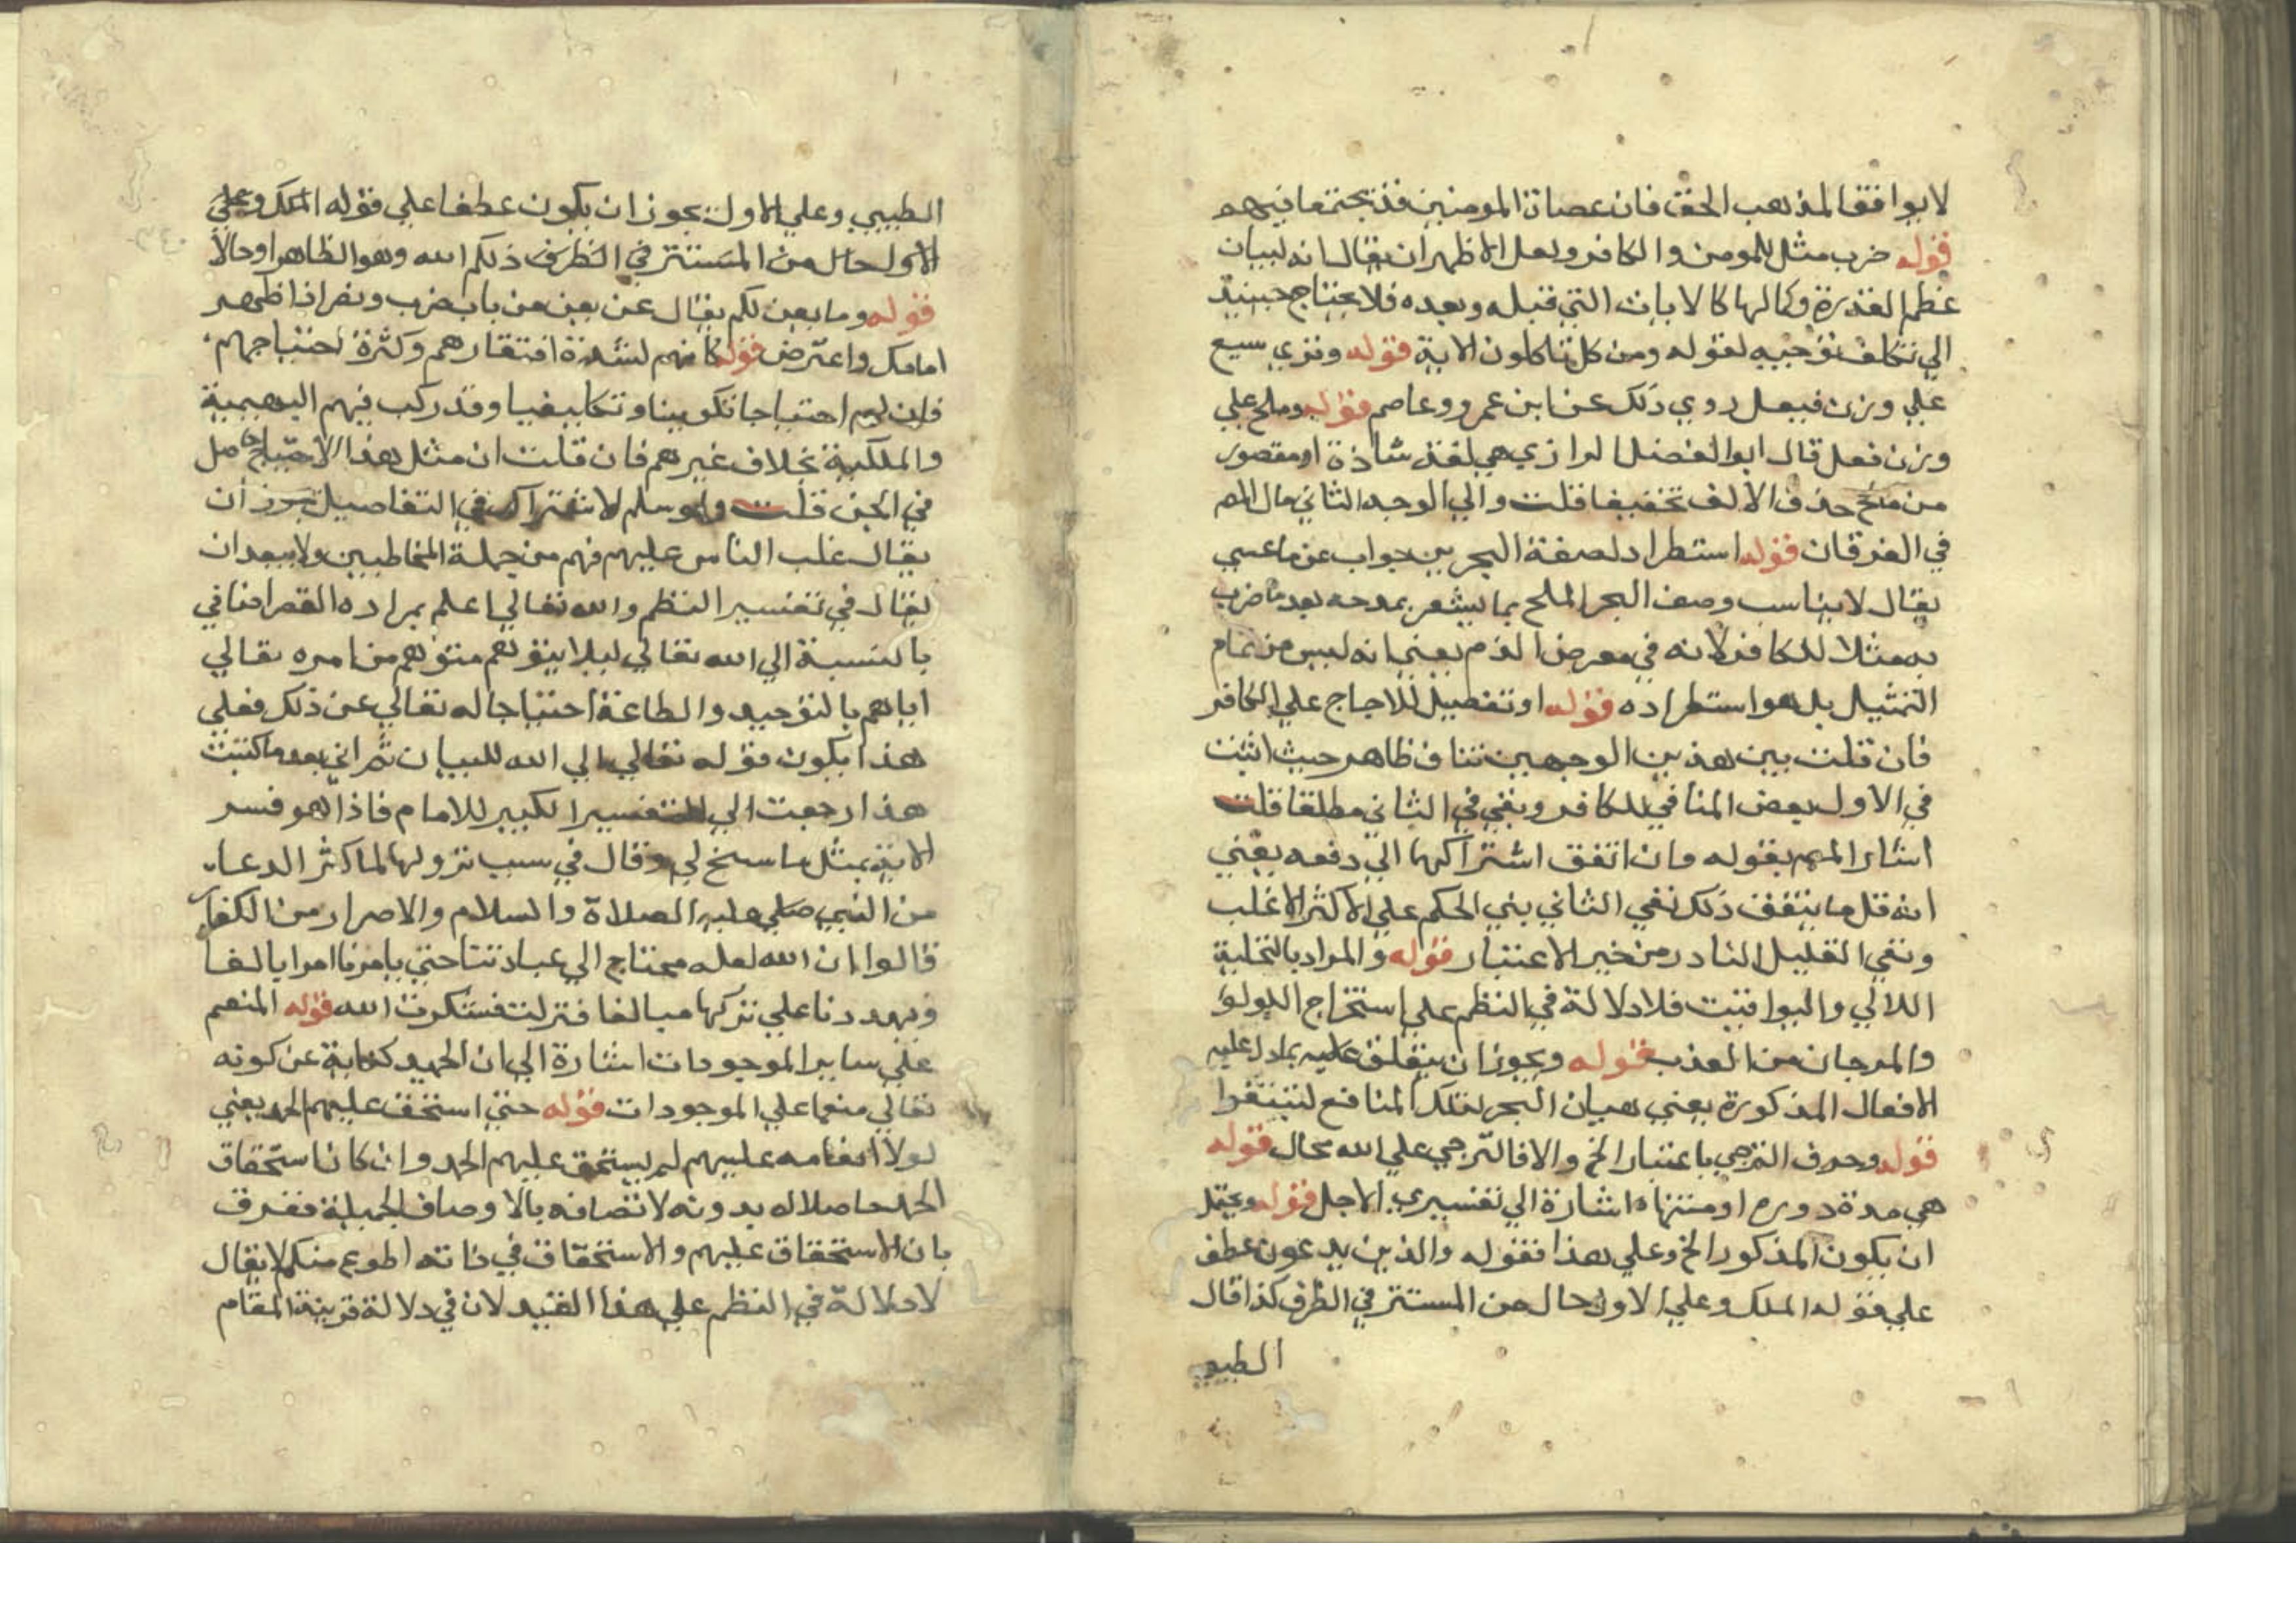 لا يوافق المذهب الحق فان عصاة المومنين قد يجتمعا فيهم
قوله ضرب مثل للمومن والكافر ولعل الاظهر ان يقال انه لبيان
عظم القدرة وكمالها كالايات التي قبله وبعده فلا يحتاج حينيذ
الي تكلف توجيه لقوله ومن كل تاكلون الاية قوله وقري سيع
علي وزن فيعل روي ذلك عن ابن عمرو وعاصم قوله وملح علي
وزن فعل قال ابو الفضل الرازي هي لغة شاذة او مقصور
من مليح حذف الالف تخفيفا قلت والي الوجه الثاني مال المص
في الفرقان قوله استطراد لصفة البحرين جواب عن ما عسي
يقال لا يناسب وصف البحر الملح بما يشعر بمدحه بعد ما ضرب
به مثلا للكافر لانه في معرض الذم يعني انه ليس من تمام
التمثيل بل هو استطراده قوله او تفضيل للاجاج علي الكافر
فان قلت بين هذين الوجهين تناف ظاهر حيث اثبت
في الاول بعض المنافي للكافر ونفي في الثاني مطلقا قلت
اشار المص بقوله وان اتفق اشتراكهما الي دفعه يعني
انه قل ما يتفق ذلك نفي الثاني بني الحكم علي الاكثر الاغلب
ونفي القليل النادر من خير الاعتبار قوله والمراد بالتحلية
اللالي واليواقيت فلا دلالة في النظم علي استخراج اللولو
والمرجان من العذب قوله ويجوز ان يتعلق عليه بما دل عليه
الافعال المذكورة يعني هيان البحر بتلك المنافع لتبتغوا
قوله وحرف الترجي باعتبار الخ والا فالترجي علي الله محال قوله
هي مدة دوره او منتهاه اشارة الي تفسيري الاجل قوله ويحتمل
ان يكون المذكور الخ وعلي هذا فقوله والذين يدعون عطف
علي قوله الملك وعلي الاول حال من المستتر في الظرف كذا قال
الطيبي
الطيبي وعلي الاول يجوز ان يكون عطفا علي قوله الملك وعلي
الاول حال من المستتر في الظرف ذلكم الله وهو الظاهر او حالا
قوله وما يعن لكم يقال عن يعن من باب ضرب ونصر اذا ظهر
امامك واعترض قوله كانهم لشدة افتقارهم وكثرة احتياجهم
فان لهم احتياجا تكوينا وتكليفيا وقد ركب فيهم البهيمية
والملكية بخلاف غيرهم فان قلت ان مثل هذا الاحتياج حاصل
في الجن قلت ولو سلم لاشتراك في التفاصيل يجوز ان
يقال غلب الناس عليهم فهم من جملة المخاطبين ولا يبعد ان
يقال في تفسير النظم والله تعالي اعلم بمراده القصر اضافي
بالنسبة الي الله تعالي ليلا يتوهم متوهم من امره تعالي
اياهم بالتوحيد والطاعة احتياجا له تعالي عن ذلك فعلي
هذا يكون قوله تعالي الي الله للبيان ثم اني بعد ما كتبت
هذا رجعت الي التفسير الكبير للامام فاذا هو فسر
الاية بمثل ما سنح لي وقال في سبب نزولها لما كثر الدعا
من النبي صلي عليه الصلاة والسلام والاصرار من الكفار
قالوا ان الله لعله محتاج الي عبادتنا حتي يامرنا امرا بالغا
ويهددنا علي تركها مبالغا فنزلت قوله المنعم
علي ساير الموجودات اشارة الي ان الحميد كناية عن كونه
تعالي منعما علي الموجودات قوله حتي استحق عليهم الحمد يعني
لولا انعامه عليهم لم يستحق عليهم الحمد وان كان استحقاق
الحمد حاصلا له بدونه لاتصافه بالاوصاف الجميلة ففرق
بان الاستحقاق عليهم والاستحقاق في ذاته اطوع منكم لا يقال
لا دلالة في النظم علي هذا القيد لان في دلالة قرينة المقام